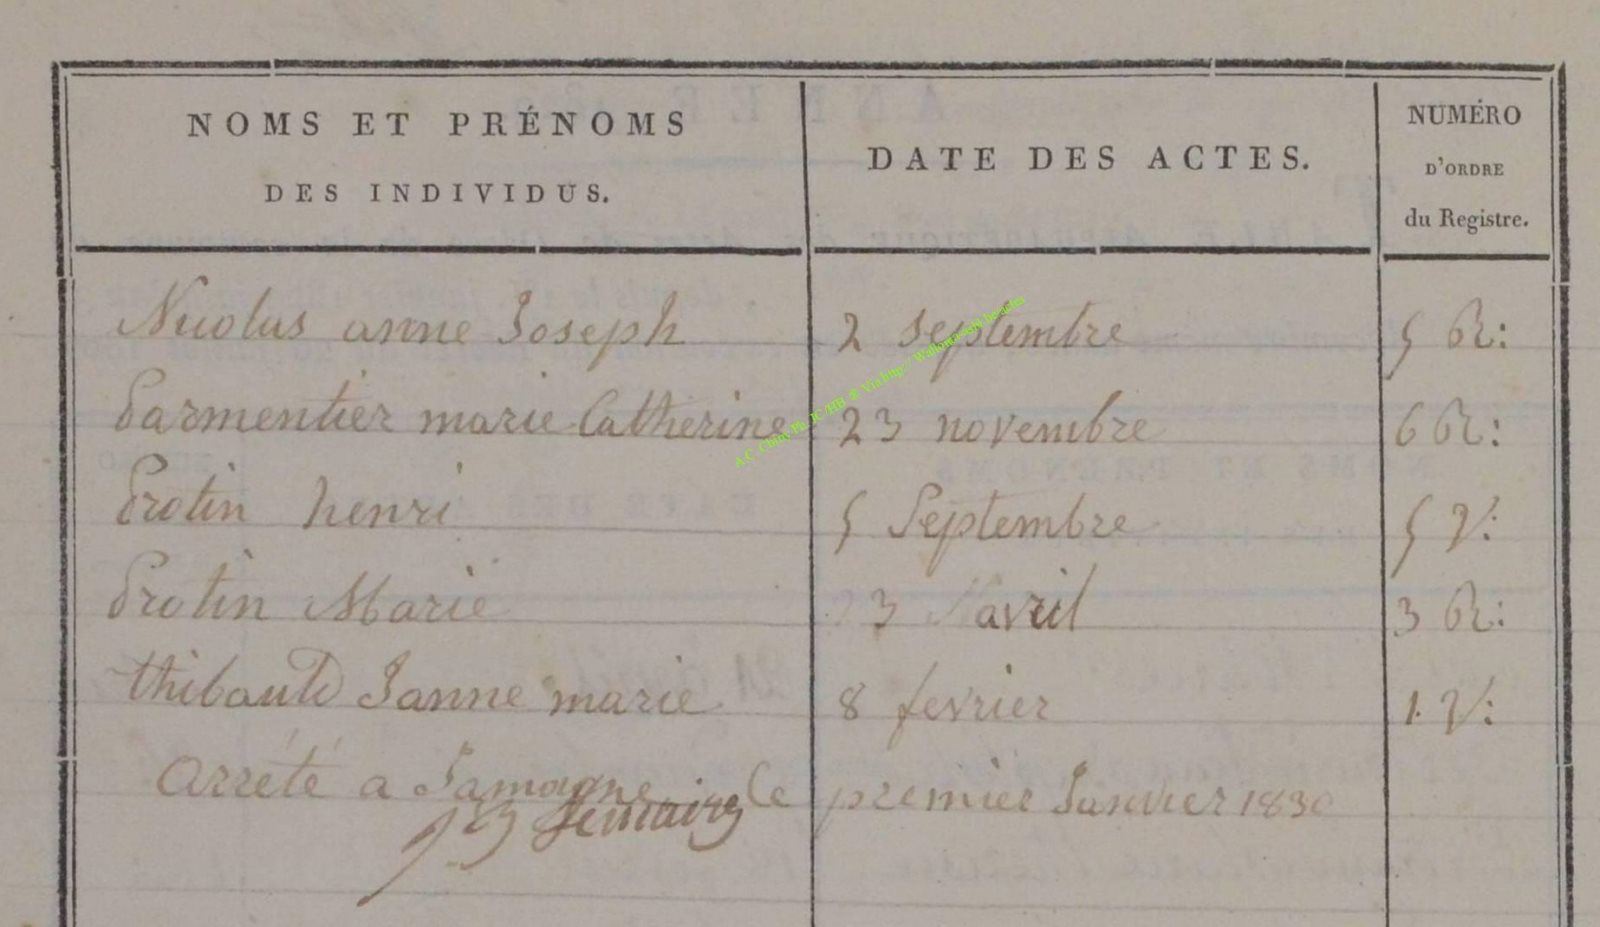 NOMS ET PRÉNOMS
DES INDIVIDUS.
DATE DES ACTES.
NUMÉRO
D'ORDRE
du Registre.
Nicolas anne Joseph 2 Septembre 5 R:
Parmentier marie Catherine 23 novembre 6 R:
Protin henri 5 Septembre 5 V:
Protin Marie 3 avril 3 R:
thibault Janne marie 8 fevrier 1. V:
Arrété a Jamoigne le premier Janvier 1830